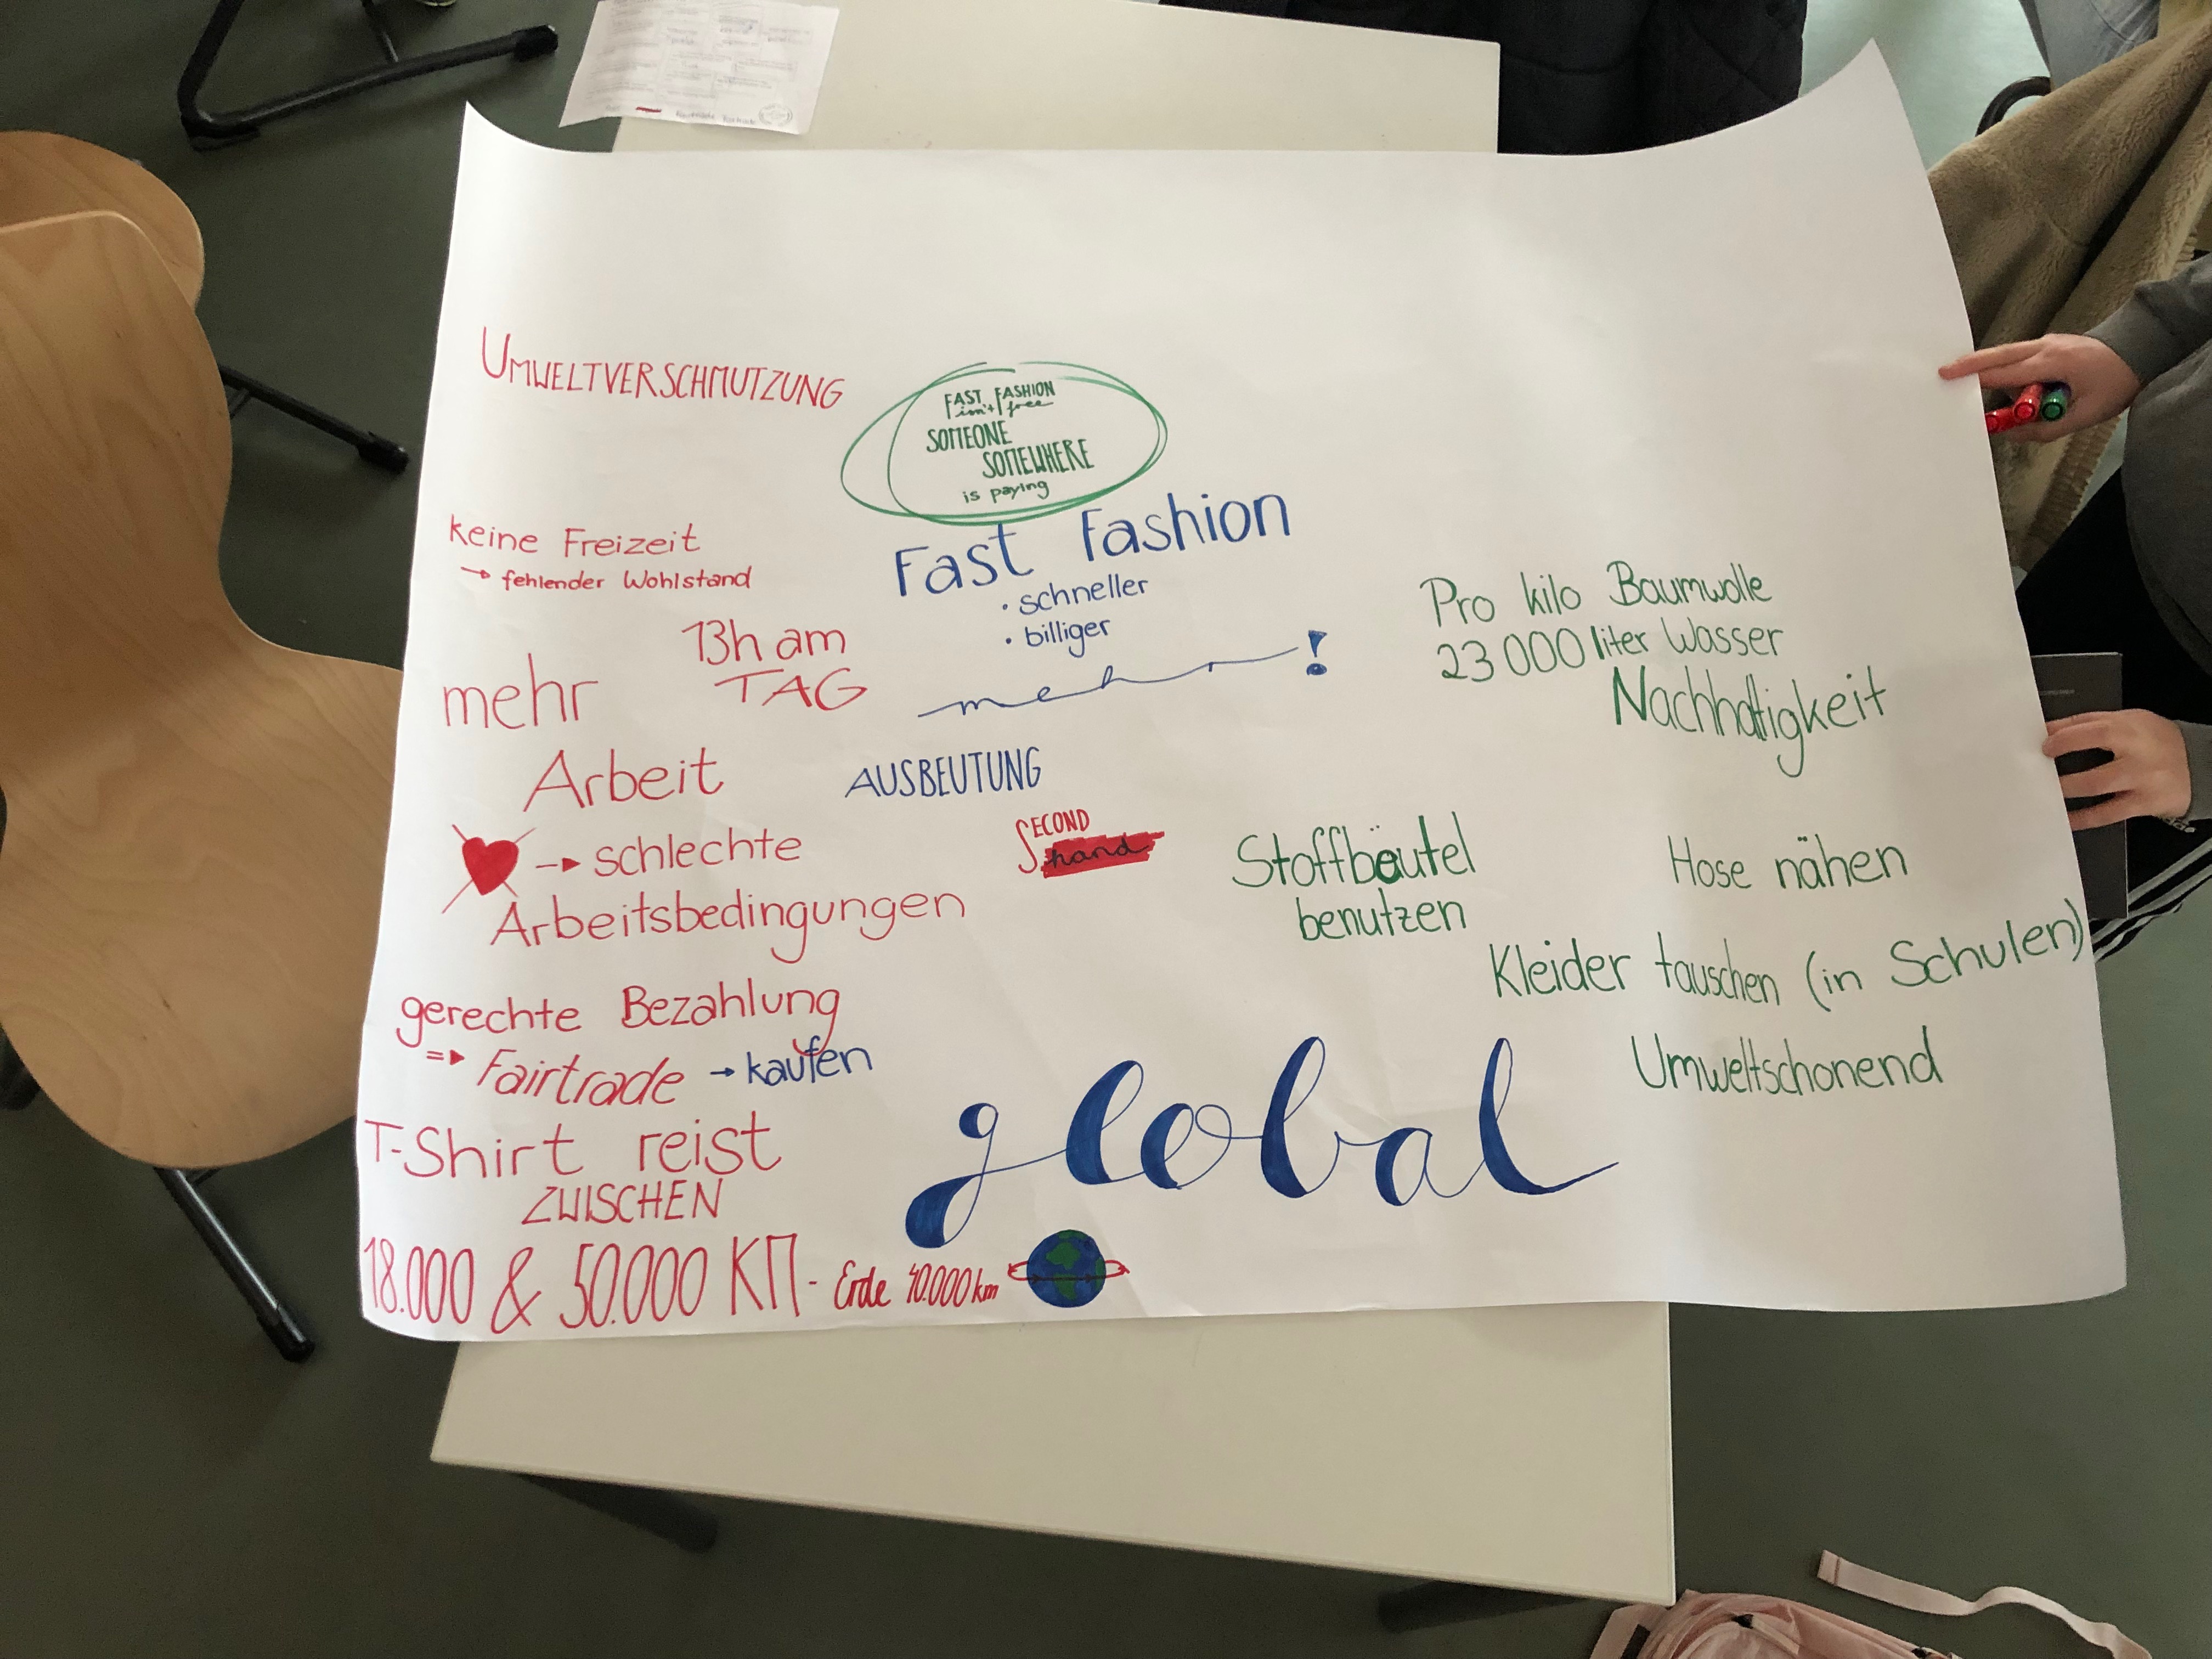 UMWELTVERSCHMUTZUNG
FAST FASHION
isn't free
SOMEONE
SOMEWHERE
is paying
Fast Fashion
• schneller
• billiger
mehr !
keine Freizeit
→ fehlender Wohlstand
13h am
TAG
mehr
Arbeit
AUSBEUTUNG
→ schlechte
Arbeitsbedingungen
SECOND
hand
gerechte Bezahlung
=> Fairtrade → kaufen
T-Shirt reist
ZWISCHEN
18.000 & 50.000 KM - Erde 40.000 km
global
Pro kilo Baumwolle
23 000 liter Wasser
Nachhaltigkeit
Stoffbeutel
benutzen
Hose nähen
Kleider tauschen (in Schulen)
Umweltschonend